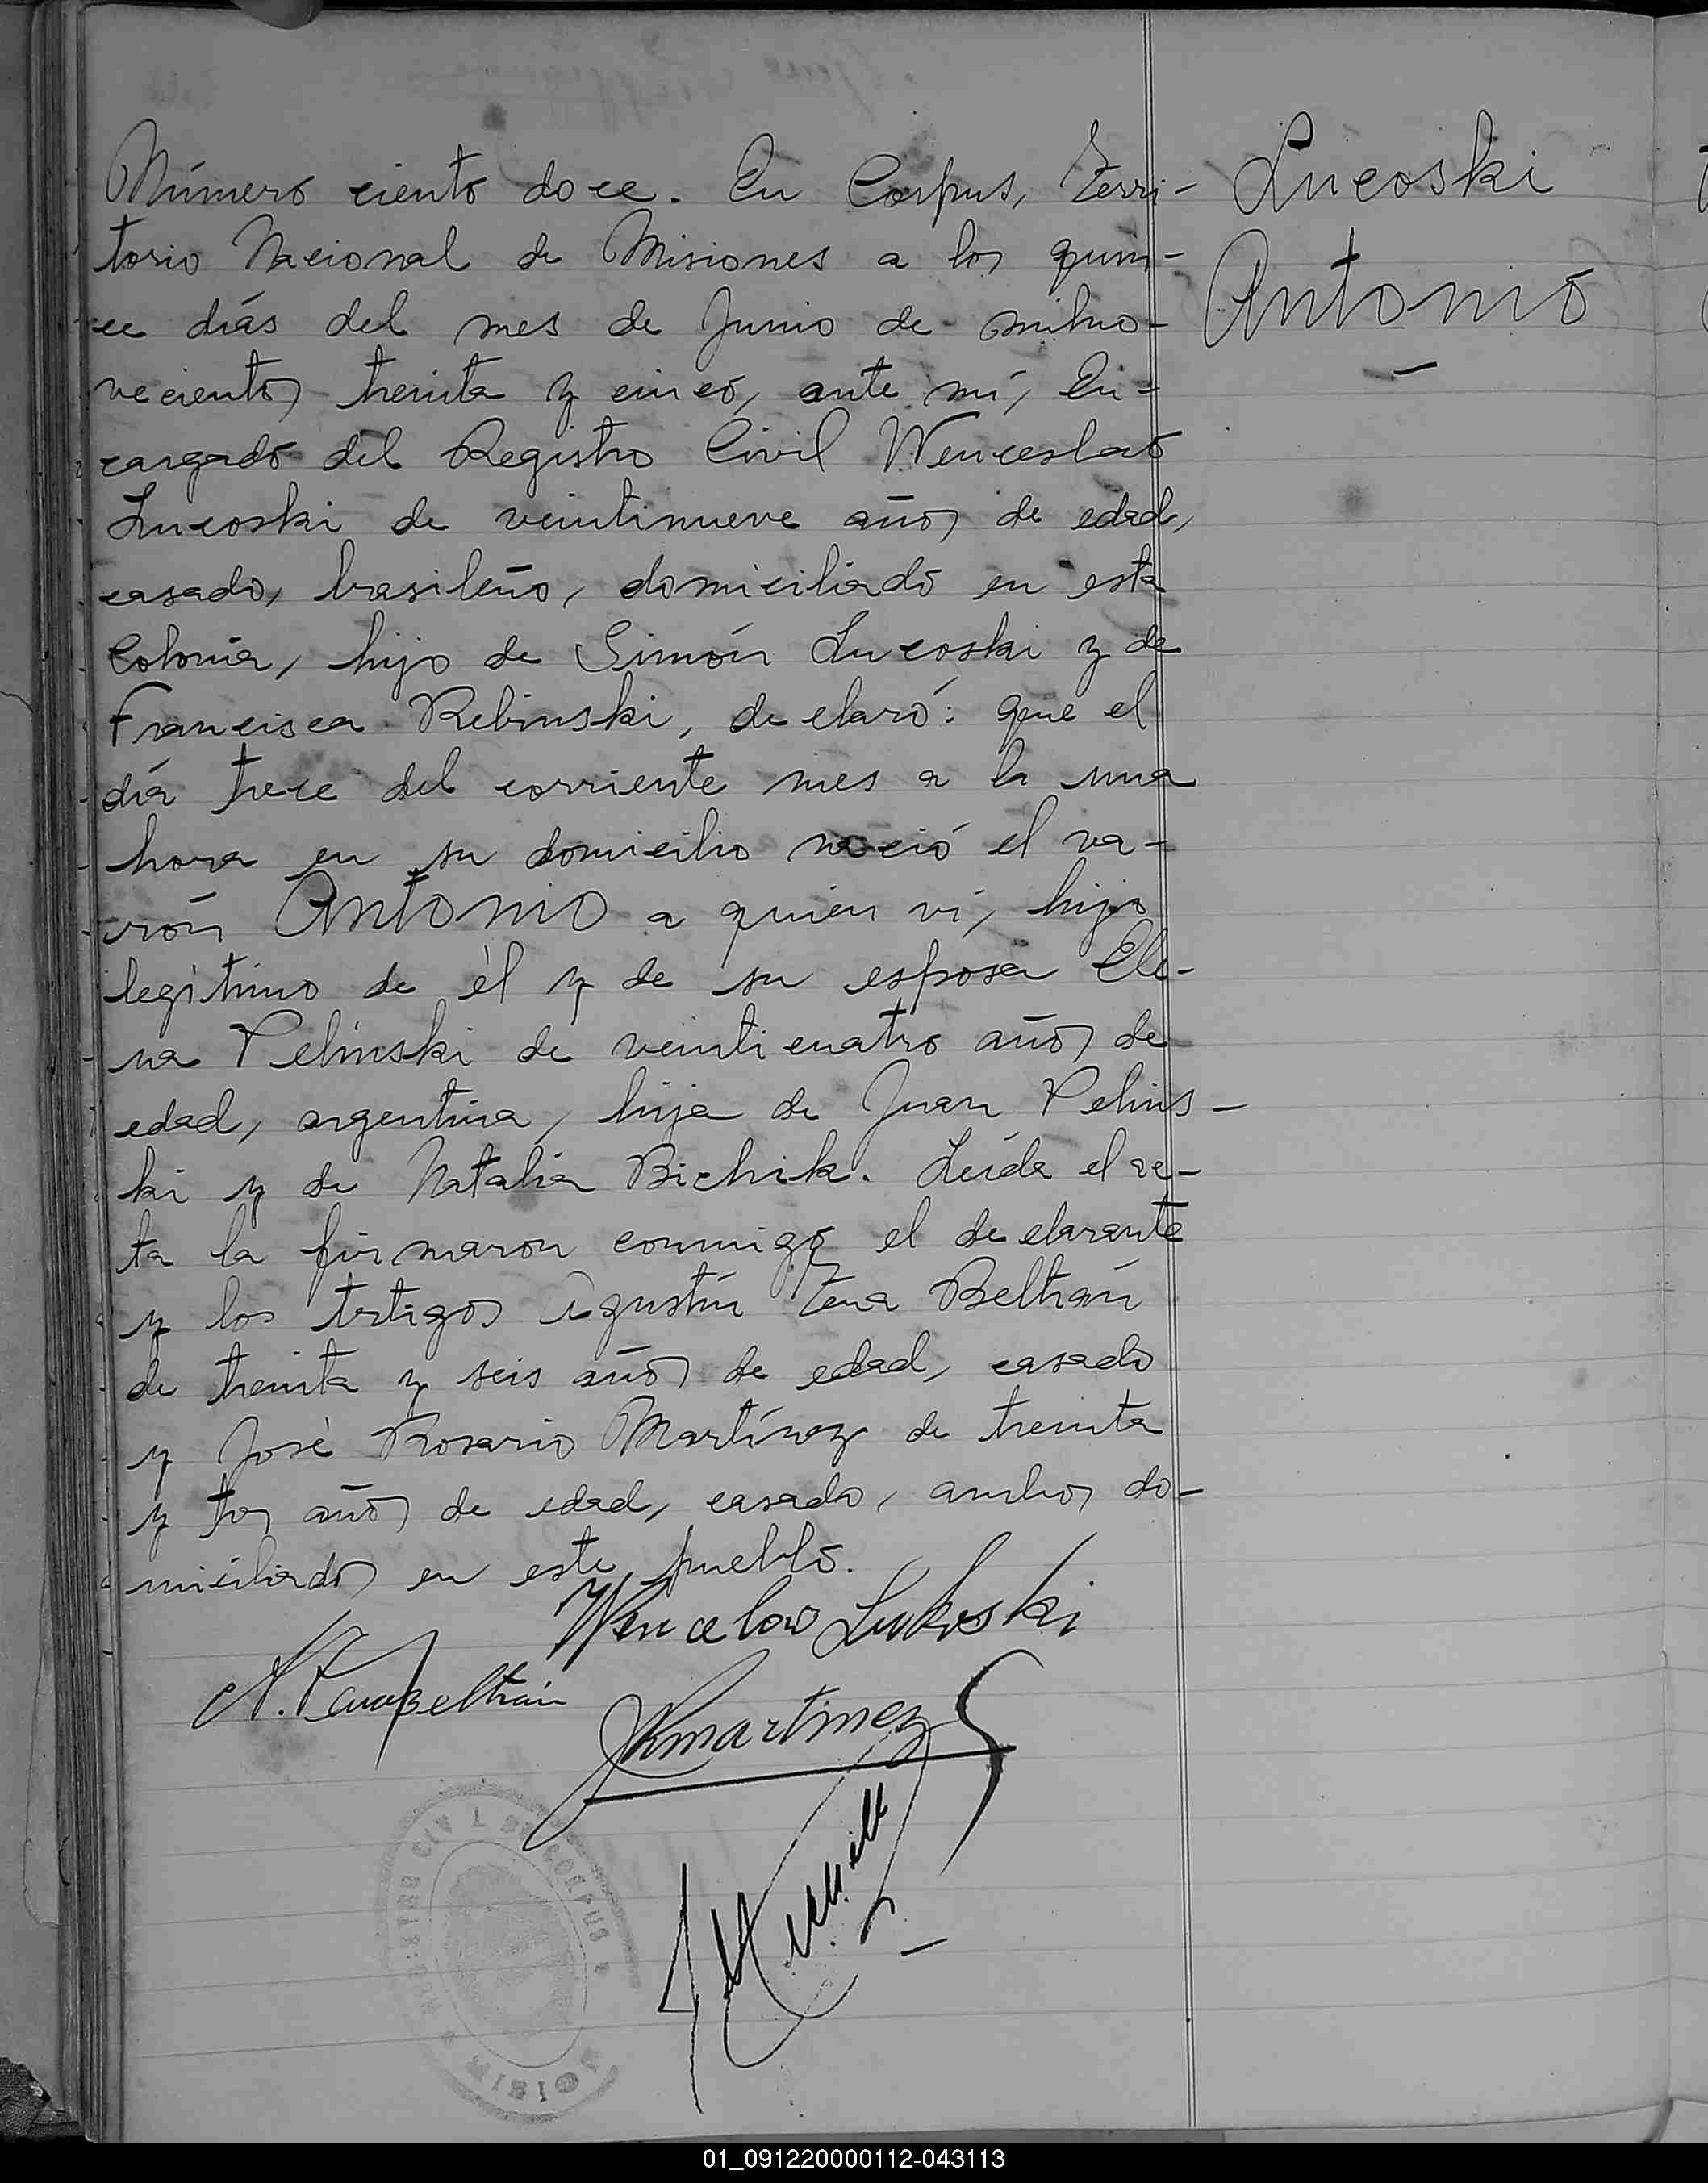 Número ciento doce. En Corpus, Terri-
torio Nacional de Misiones a los quin-
ce días del mes de Junio de milno-
vecientos treinta y cinco, ante mí, En-
cargado del Registro Civil Wenceslao
Lucoski de veintinueve años de edad,
casado, brasileño, domiciliado en esta
Colonia, hijo de Simón Lucoski y de
Francisca Rebinski, declaró: que el
día trece del corriente mes a la una
hora en su domicilio nació el va-
rón Antonio a quien ví, hijo
legítimo de él y de su esposa Ele-
na Pelinski de veinticuatro años de
edad, argentina, hija de Juan Pelins-
ki y de Natalia Bichik. Leída el ac-
ta la firmaron conmigo el declarante
y los testigos Agustín Tena Beltrán
de treinta y seis años de edad, casado
y José Rosario Martínez de treinta
y tres años de edad, casado, ambos do-
miciliados en este pueblo.
Lucoski
Antonio
Wencelao Lukoski
A. Tena Beltrán
JRMartinez
REGISTRO CIVIL DE CORPUS
MISIONES
01_091220000112-043113